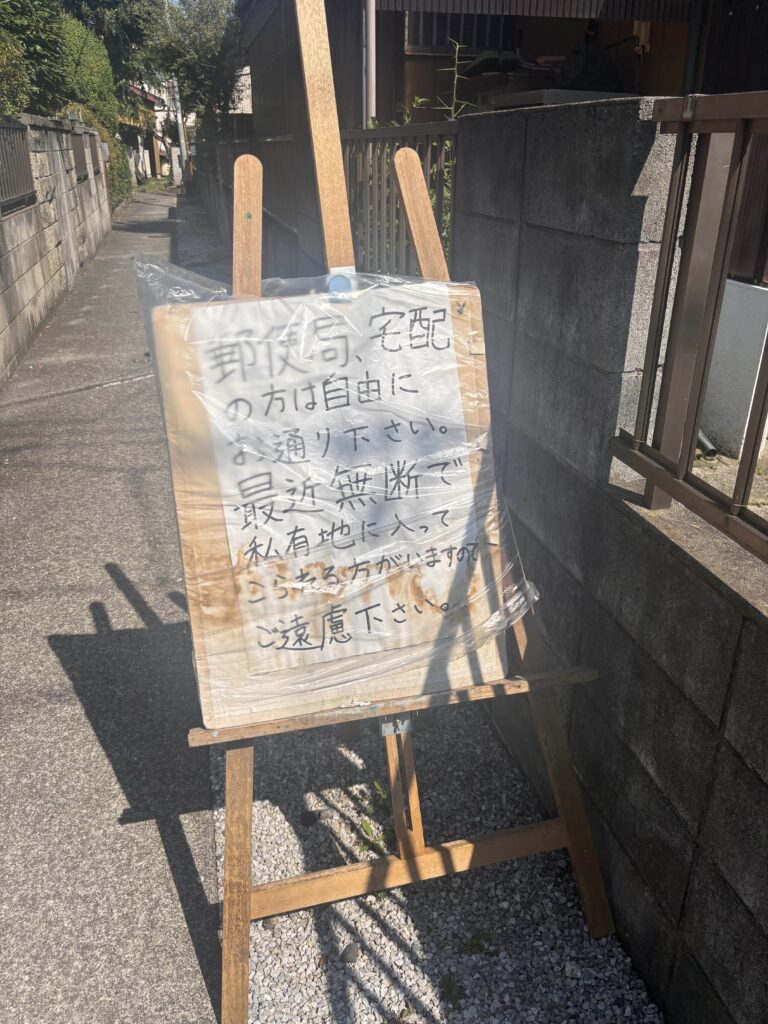 郵便局、宅配
の方は自由に
お通り下さい。
最近無断で
私有地に入って
こられる方がいますので
ご遠慮下さい。